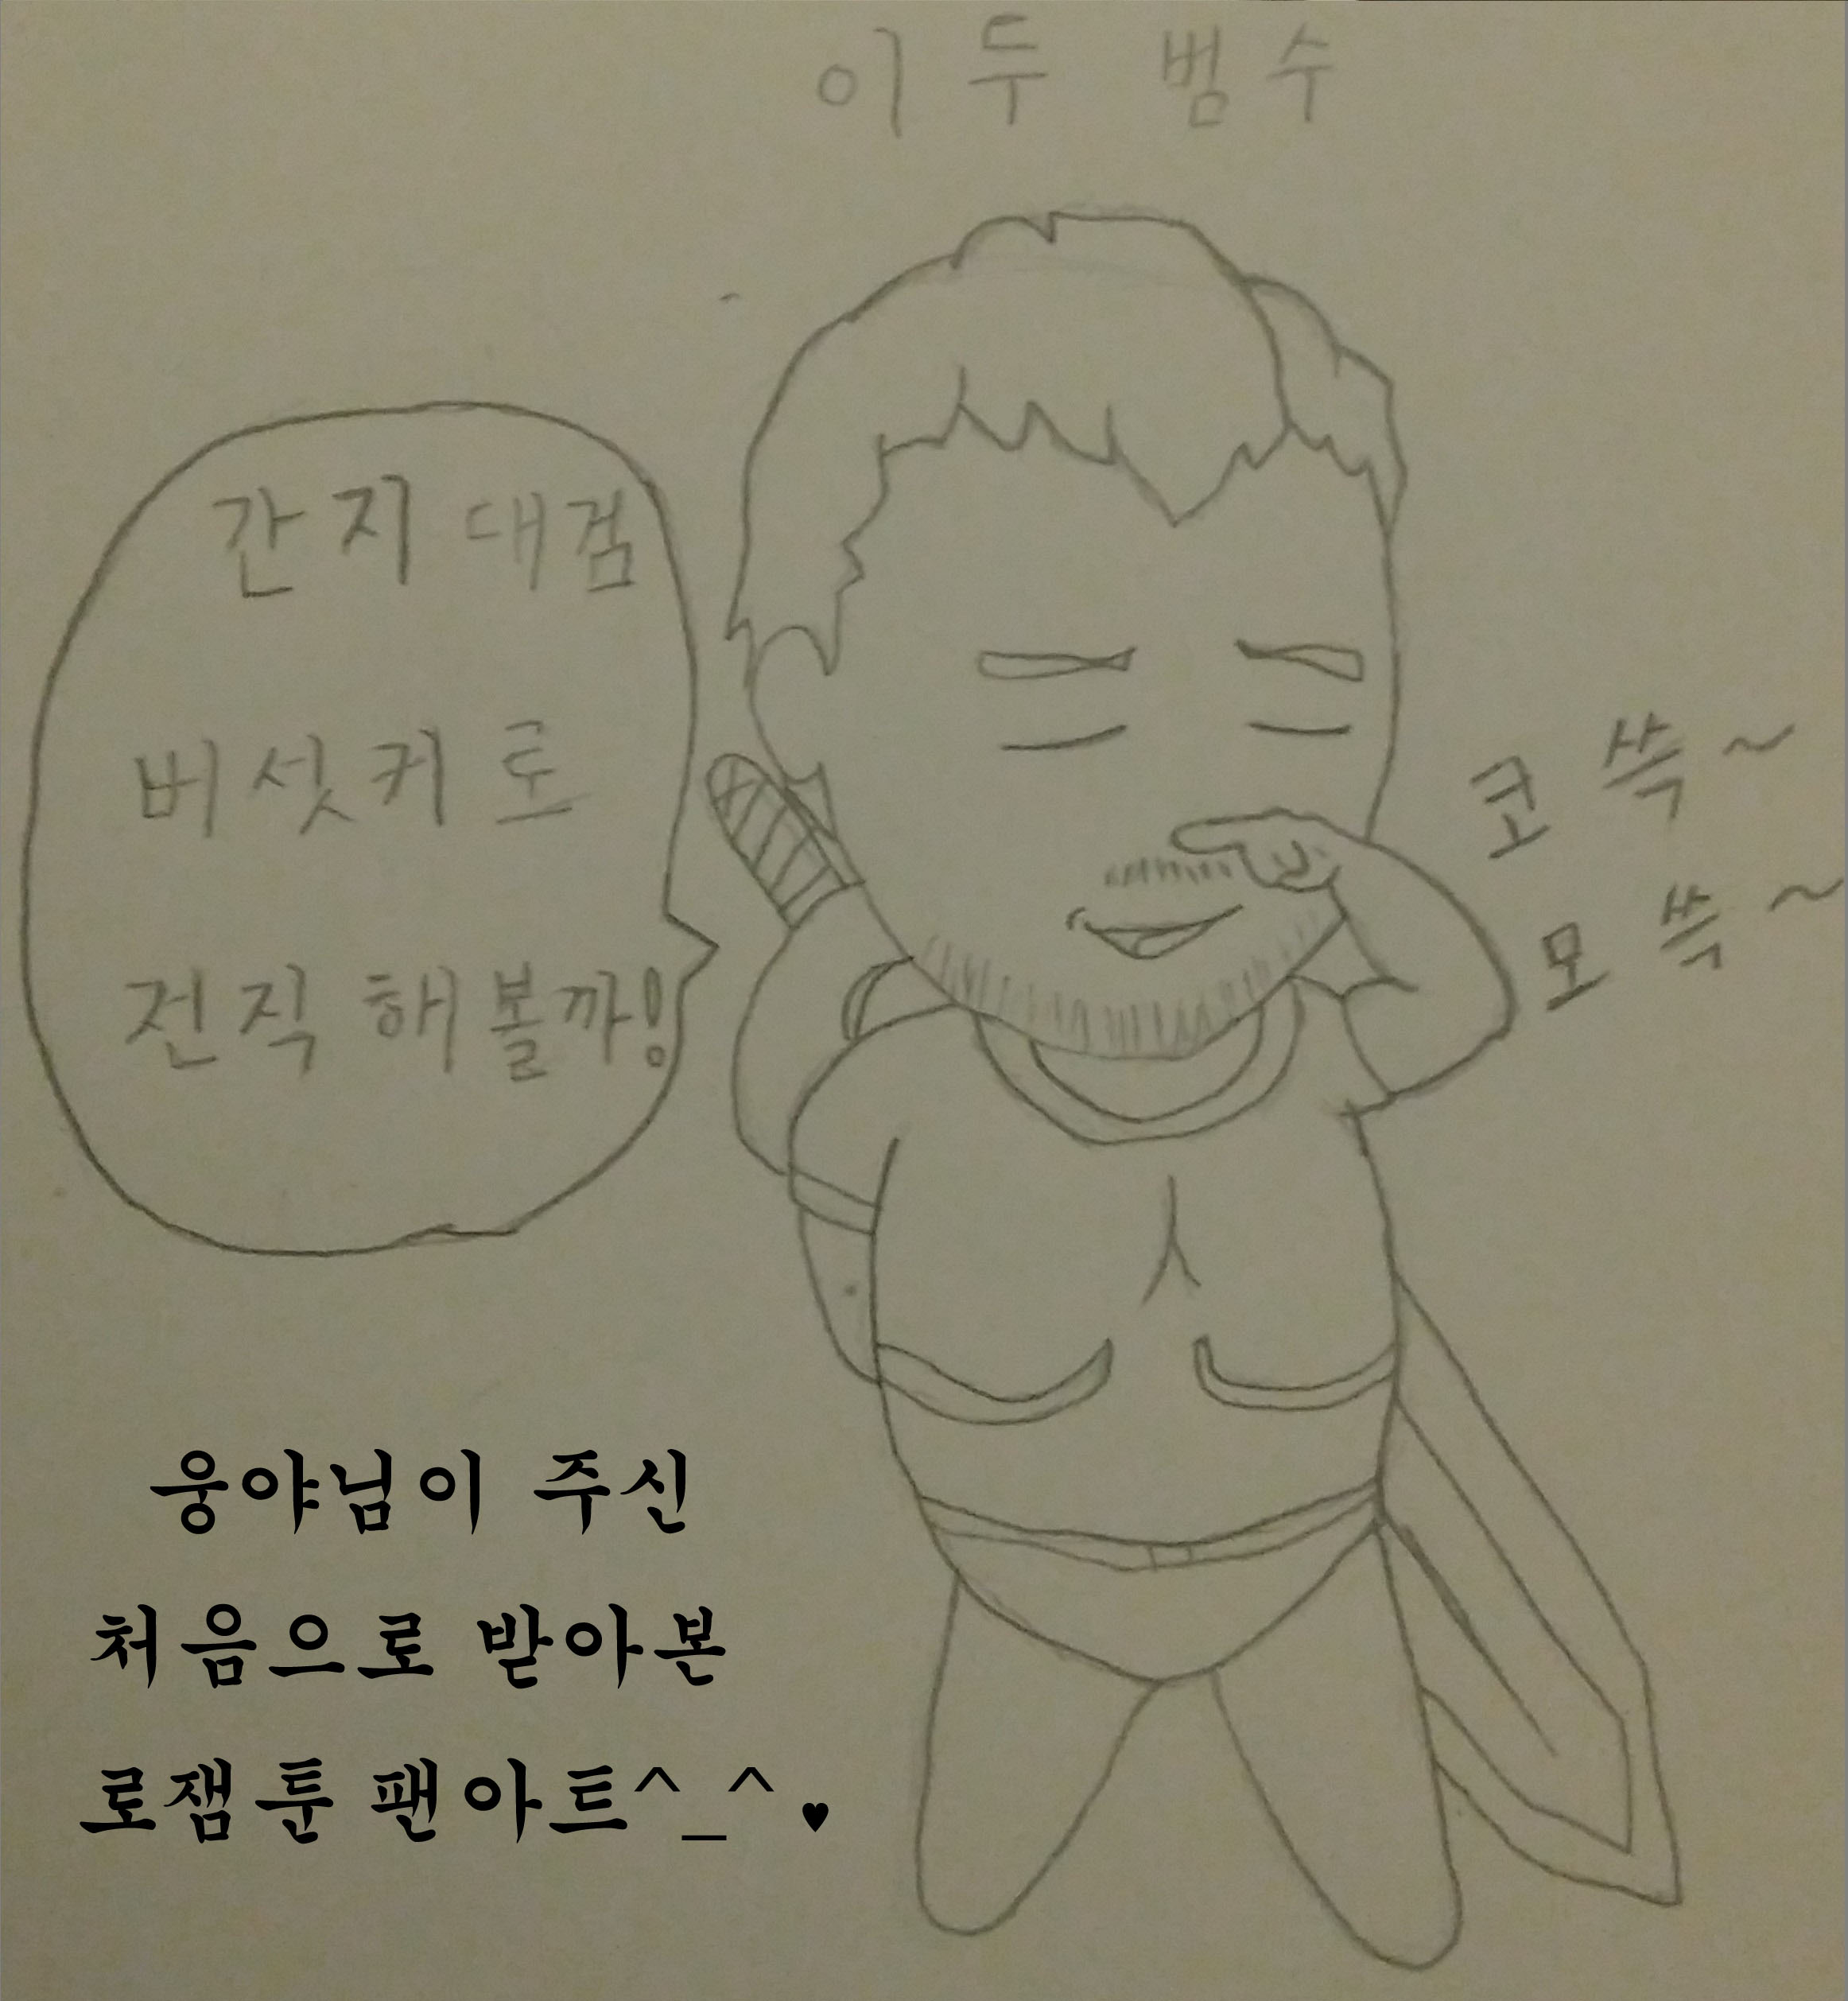 이두범수
간지대검
버섯커로
전직해볼까!
코쓱~
모쓱~
웅야님이 주신
처음으로 받아본
로잼툰 팬아트^_^♥